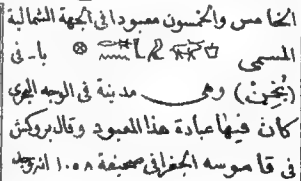 الخامس والخمسون معبودا فى الجهة الشمالية
المسمى با ـ فى
وهى مدينة فى الوجه البحرى
كان فيها عبادة هذا المعبود وقال بروكش
فى قاموسه الجغرافى صحيفة ١٠٥٨ انه وجد